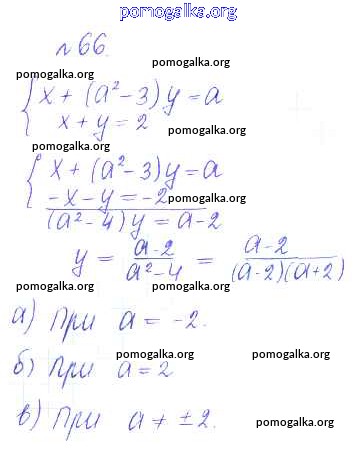 pomogalka.org
№66.
pomogalka.org pomogalka.org
{ x + (a² - 3) y = a
x + y = 2 pomogalka.org
pomogalka.org
{ x + (a² - 3) y = a
-x - y = -2 pomogalka.org
(a² - 4) y = a - 2
y = (a - 2)/(a² - 4) = (a - 2)/((a - 2)(a + 2))
pomogalka.org
а) При a = -2.
pomogalka.org pomogalka.org
б) При a = 2
pomogalka.org
в) При a ≠ ±2. pomogalka.org